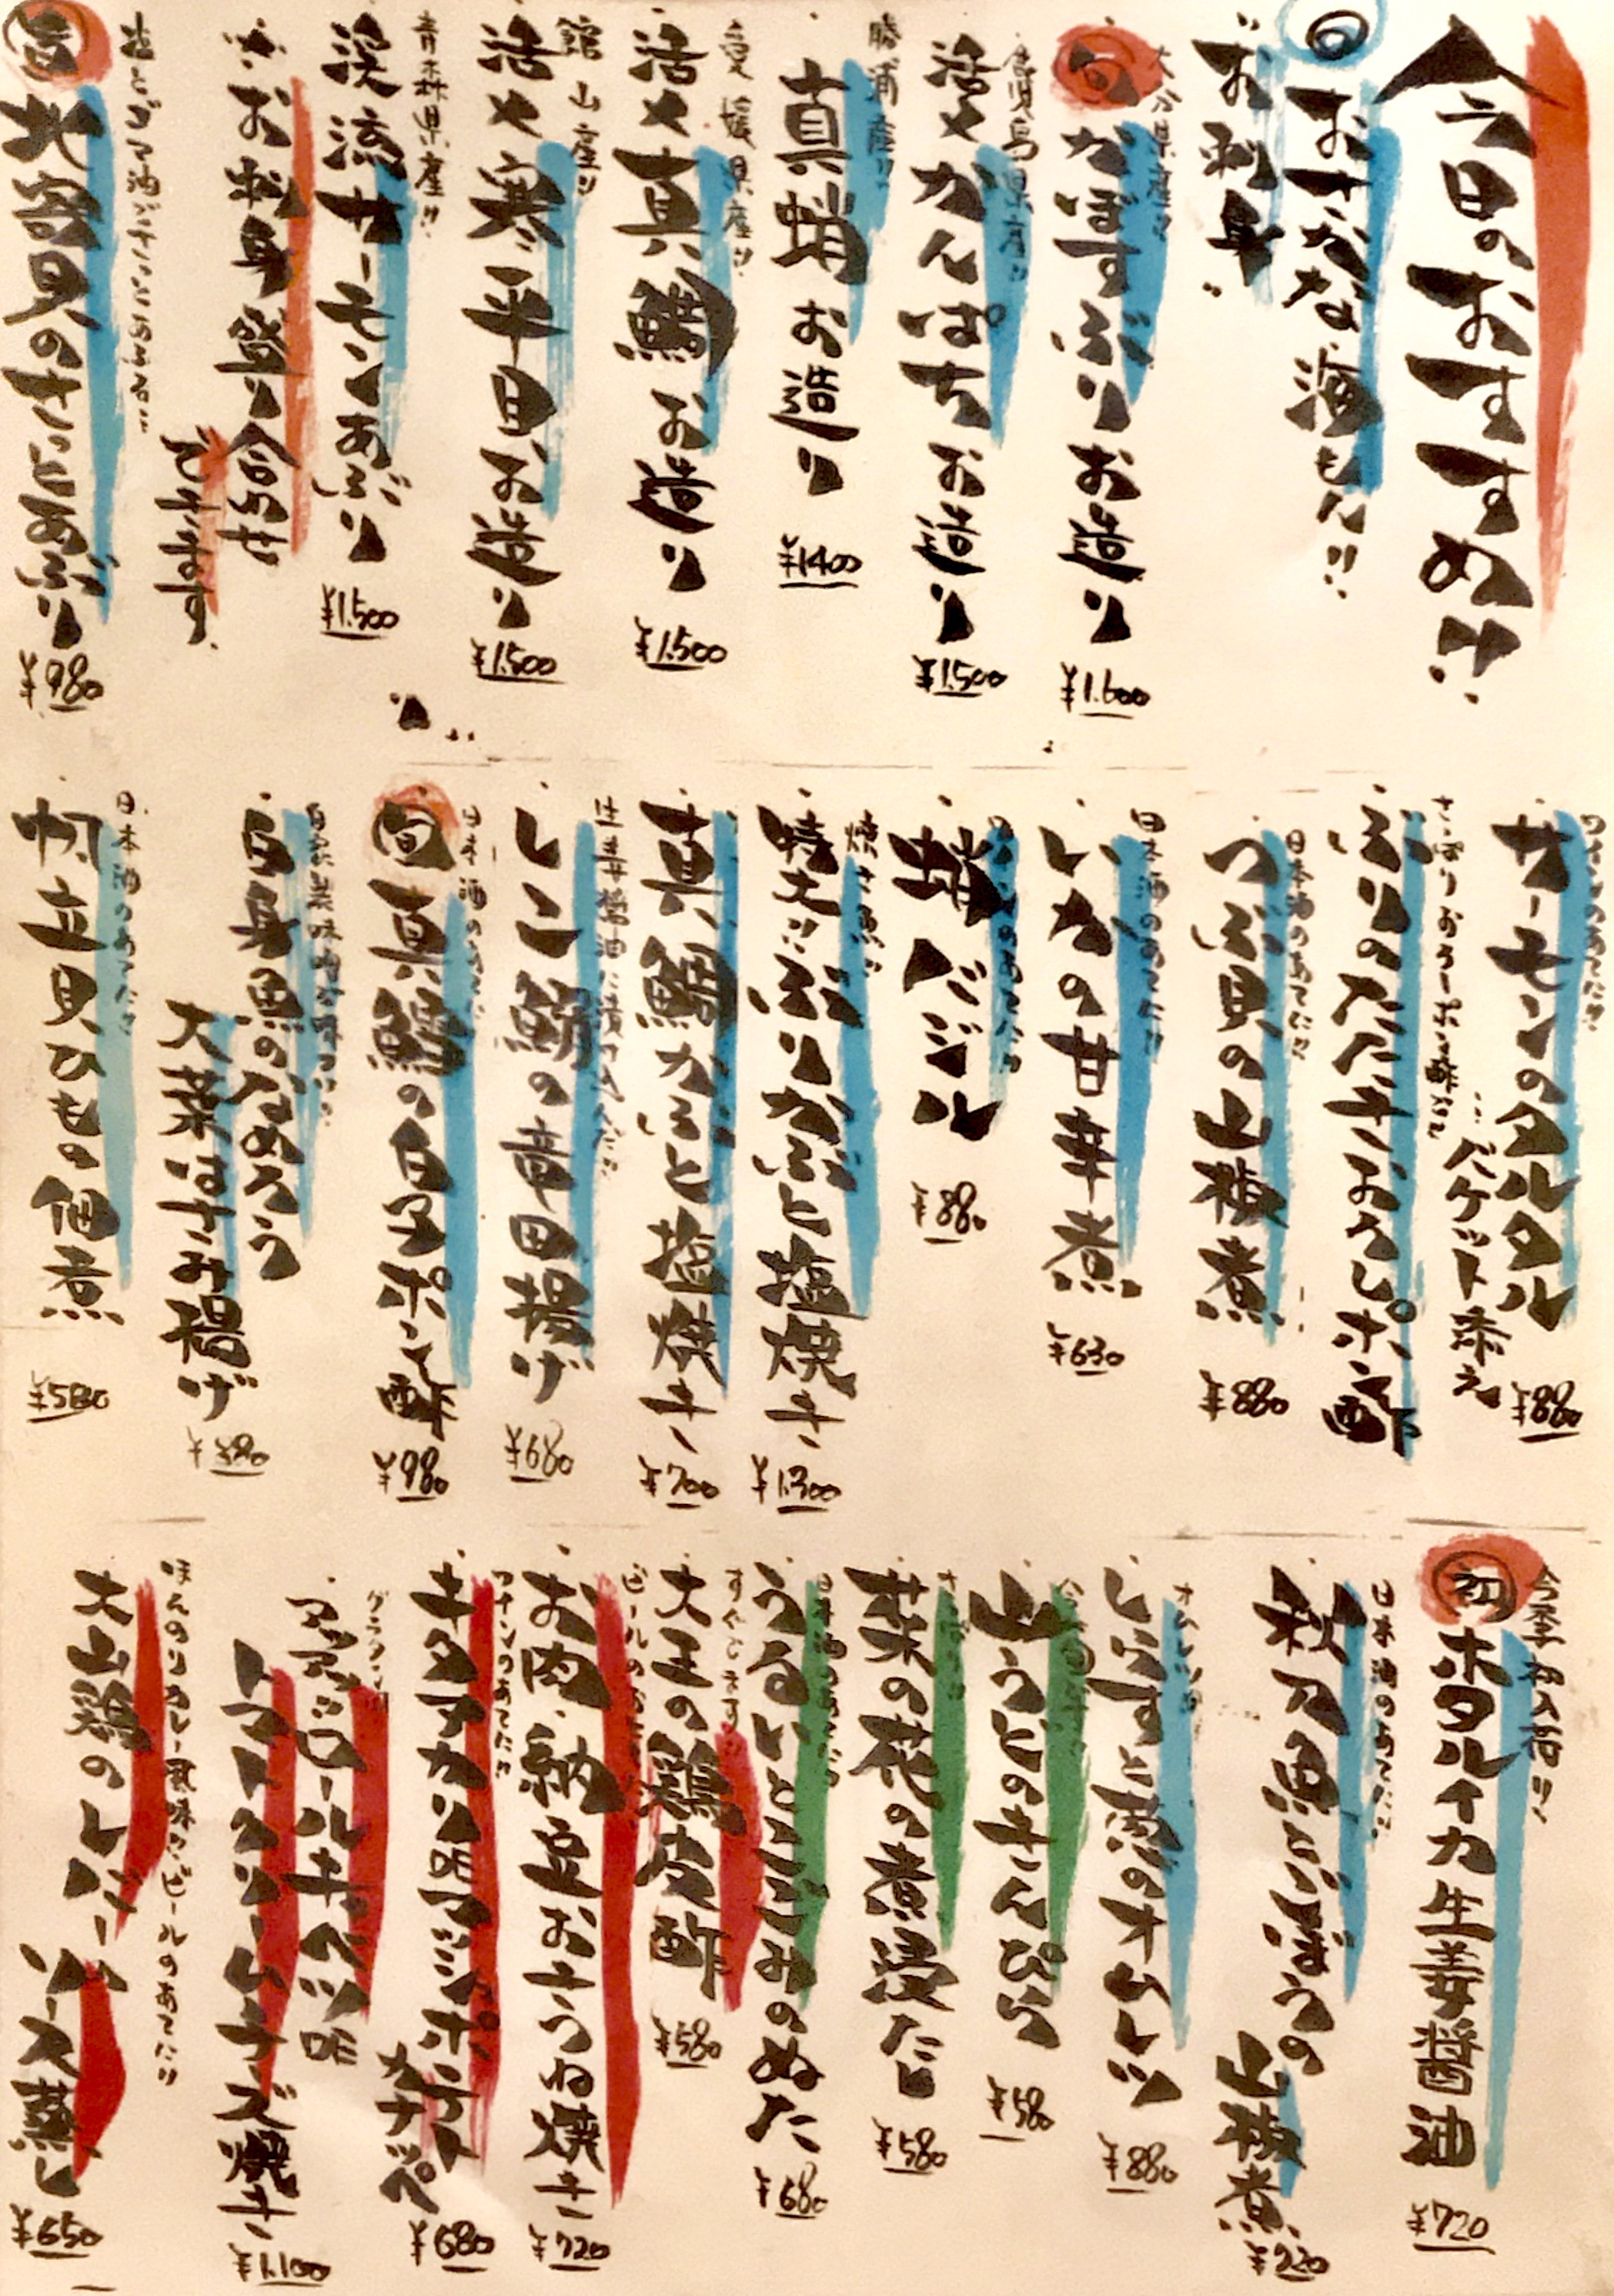 今日のおすすめ!!
旬 おさかな・海もん!!
お刺身
大分県産!!
旬 かぼすぶりお造り
¥1.600
鹿児島県産!!
活〆かんぱちお造り
¥1.500
勝浦産!!
真蛸お造り
¥1400
愛媛県産!!
活〆真鯛お造り
¥1.500
館山産!!
活〆寒平目お造り
¥1.500
青森県産!!
渓流サーモンあぶり
¥1.500
お刺身盛り合わせ
できます
塩とゴマ油で
旨 北寄貝のさっとあぶり
¥980
ワインのあてに!!
サーモンのタルタル
バケット添え
¥880
さっぱりおろしポン酢で
ぶりのたたきおろしポン酢
日本酒のあてに!!
つぶ貝の山椒煮
¥880
日本酒のあてに!!
いかの甘辛煮
¥630
ワインのあてに!!
蛸バジル
¥880
焼き魚!!
特大!!ぶりかぶと塩焼き
¥1.300
真鯛かぶと塩焼き
¥700
生姜醤油に漬け込んだ!!
しこ鰯の竜田揚げ
¥680
日本酒のあてに
旬 真鱈の白子ポン酢
¥980
白身魚のなめろう
大葉はさみ揚げ
日本酒のあてに!!
帆立貝ひもの佃煮
¥580
今季初入荷!!
初 ホタルイカ生姜醤油
¥720
日本酒のあてに!!
秋刀魚とごぼうの
山椒煮
しらすと葱のオムレツ
¥880
山うどのきんぴら
¥580
菜の花の煮浸たし
¥580
日本酒のあてに!!
うるいとこごみのぬた
¥680
すぐでます!!
大王の鶏皮酢
¥580
お肉、納豆おきつね焼き
¥720
ワインのあてに!!
キタアカリ de アンシポテト
カナッペ
¥680
グラタン風
マッシュルームキャベツ de
トマトクリームチーズ焼き
¥1.100
ほんのりカレー風味!!ビールのあてに!!
大山鶏のレバー
ソース蒸し
¥650